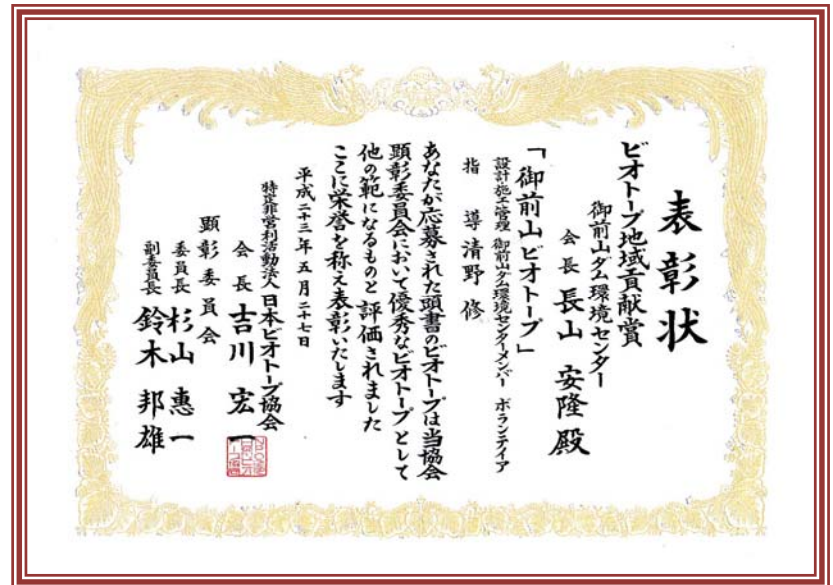 表彰状
ビオトープ地域貢献賞
御前山ダム環境センター
会長 長山 安隆 殿
「御前山ビオトープ」
設計施工管理 御前山ダム環境センターメンバー ボランティア
指導 清野 修
あなたが応募された頭書のビオトープは当協会
顕彰委員会において優秀なビオトープとして
他の範になるものと評価されました
ここに栄誉を称え表彰いたします
平成二十三年五月二十七日
特定非営利活動法人 日本ビオトープ協会
会長 吉川 宏一
顕彰委員会
委員長 杉山 惠一
副委員長 鈴木 邦雄